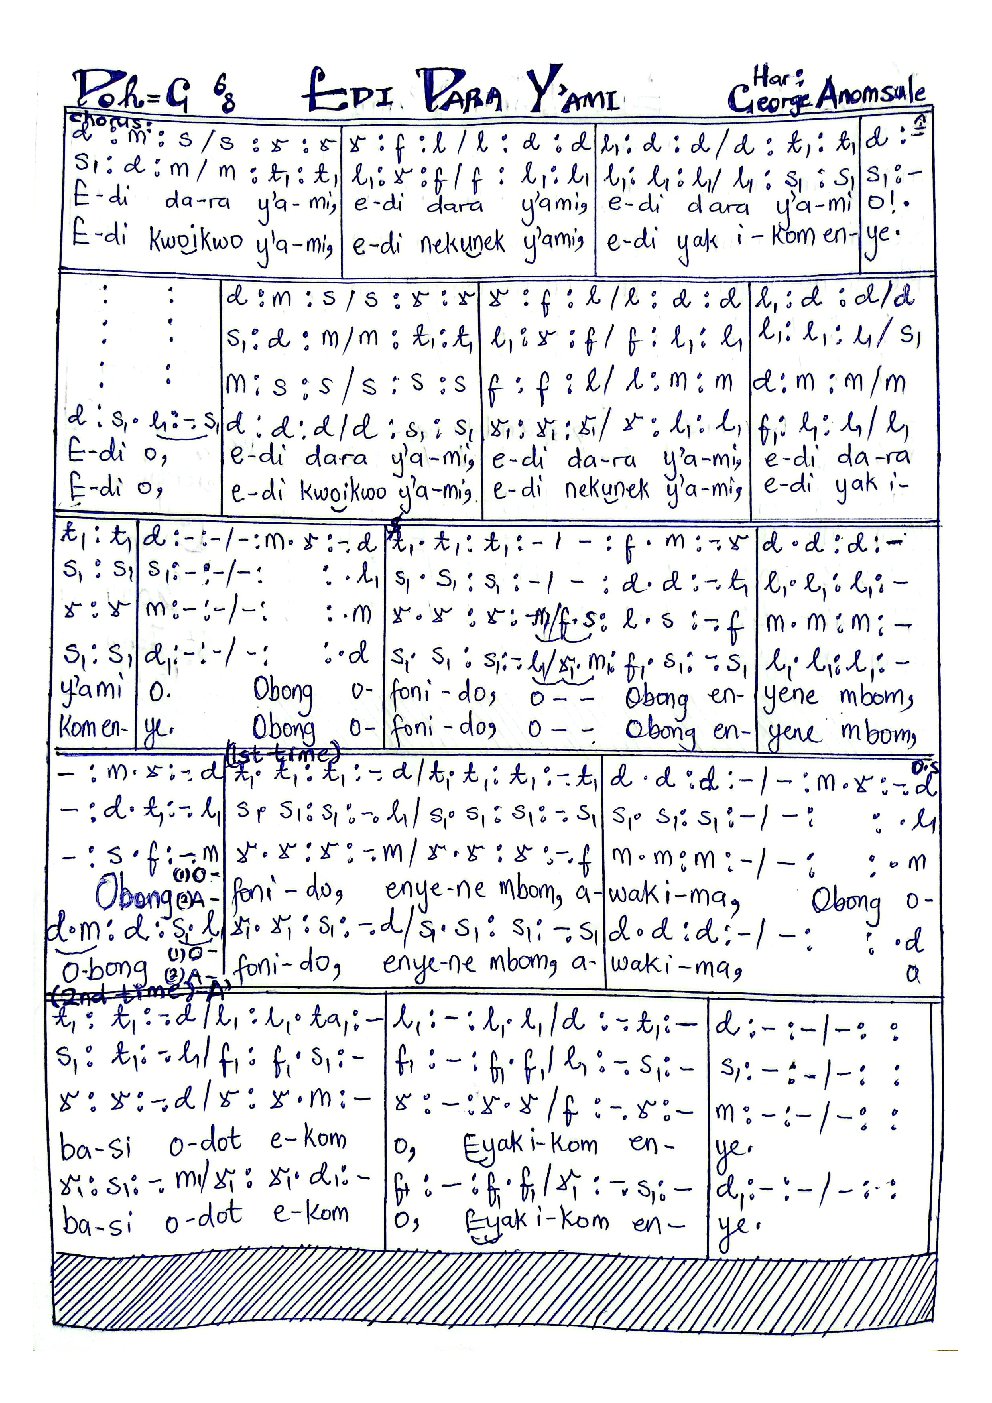 Doh=G 6/8 EDI DARA Y'AMI Har: George Anomsule
Chorus:
d : m : s / s : r : r | r : f : l / l : d : d | l₁ : d : d / d : t₁ : t₁ | d : -
s₁ : d : m / m : t₁ : t₁ | l₁ : r : f / f : l₁ : l₁ | l₁ : l₁ : l₁ / l₁ : s₁ : s₁ | s₁ : -
E-di da-ra y'a-mi, e-di dara y'ami, e-di dara y'a-mi O!.
E-di kwoikwo y'a-mi, e-di nekunek y'ami, e-di yak i-kom en- ye.
: : | d : m : s / s : r : r | r : f : l / l : d : d | l₁ : d : d / d
: : | s₁ : d : m / m : t₁ : t₁ | l₁ : r : f / f : l₁ : l₁ | l₁ : l₁ : l₁ / s₁
: : | m : s : s / s : s : s | f : f : l / l : m : m | d : m : m / m
d : s₁ . l₁ : - s₁ | d : d : d / d : s₁ : s₁ | r₁ : r₁ : r₁ / r : l₁ : l₁ | f₁ : l₁ : l₁ / l₁
E-di o, e-di dara y'a-mi, e-di da-ra y'a-mi, e-di da-ra
E-di o, e-di kwoikwo y'a-mi, e-di nekunek y'a-mi, e-di yak i-
t₁ : t₁ | d : - : - / - : m . r : -. d | t₁ . t₁ : t₁ : - / - : f . m : -. r | d . d : d : -
s₁ : s₁ | s₁ : - : - / - : : . l₁ | s₁ . s₁ : s₁ : - / - : d . d : -. t₁ | l₁ . l₁ : l₁ : -
r : r | m : - : - / - : : . m | r . r : r : -. m / f . s : l . s : -. f | m . m : m : -
s₁ : s₁ | d₁ : - : - / - : : . d | s₁ . s₁ : s₁ : -. l₁ / r₁ . m₁ : f₁ . s₁ : -. s₁ | l₁ . l₁ : l₁ : -
y'ami O. Obong o- foni-do, o - - Obong en- yene mbom,
kom en- ye. Obong o- foni-do, o - - Obong en- yene mbom,
(1st time)
- : m . r : -. d | t₁ . t₁ : t₁ : -. d / t₁ . t₁ : t₁ : -. t₁ | d . d : d : - / - : m . r : -. d D.S
- : d . t₁ : -. l₁ | s₁ . s₁ : s₁ : -. l₁ / s₁ . s₁ : s₁ : -. s₁ | s₁ . s₁ : s₁ : - / - : : . l₁
- : s . f : -. m | r . r : r : -. m / r . r : r : -. f | m . m : m : - / - : : . m
Obong (1) O- (2) A- foni-do, enye-ne mbom, a- waki-ma, Obong o-
d . m : d : s₁ . l₁ | r₁ . r₁ : s₁ : -. d / s₁ . s₁ : s₁ : -. s₁ | d . d : d : - / - : : . d
O-bong (1) O- (2) A- foni-do, enye-ne mbom, a- waki-ma, a
(2nd time) -A'
t₁ : t₁ : -. d / l₁ : l₁ . ta₁ : - | l₁ : - : l₁ . l₁ / d : -. t₁ : - | d : - : - / - : :
s₁ : t₁ : -. l₁ / f₁ : f₁ . s₁ : - | f₁ : - : f₁ . f₁ / l₁ : -. s₁ : - | s₁ : - : - / - : :
r : r : -. d / r : r . m : - | r : - : r . r / f : -. r : - | m : - : - / - : :
ba-si o-dot e-kom O, Eyak i-kom en- ye.
r₁ : s₁ : -. m₁ / r₁ : r₁ . d₁ : - | f₁ : - : f₁ . f₁ / r₁ : -. s₁ : - | d₁ : - : - / - : :
ba-si o-dot e-kom O, Eyak i-kom en- ye.